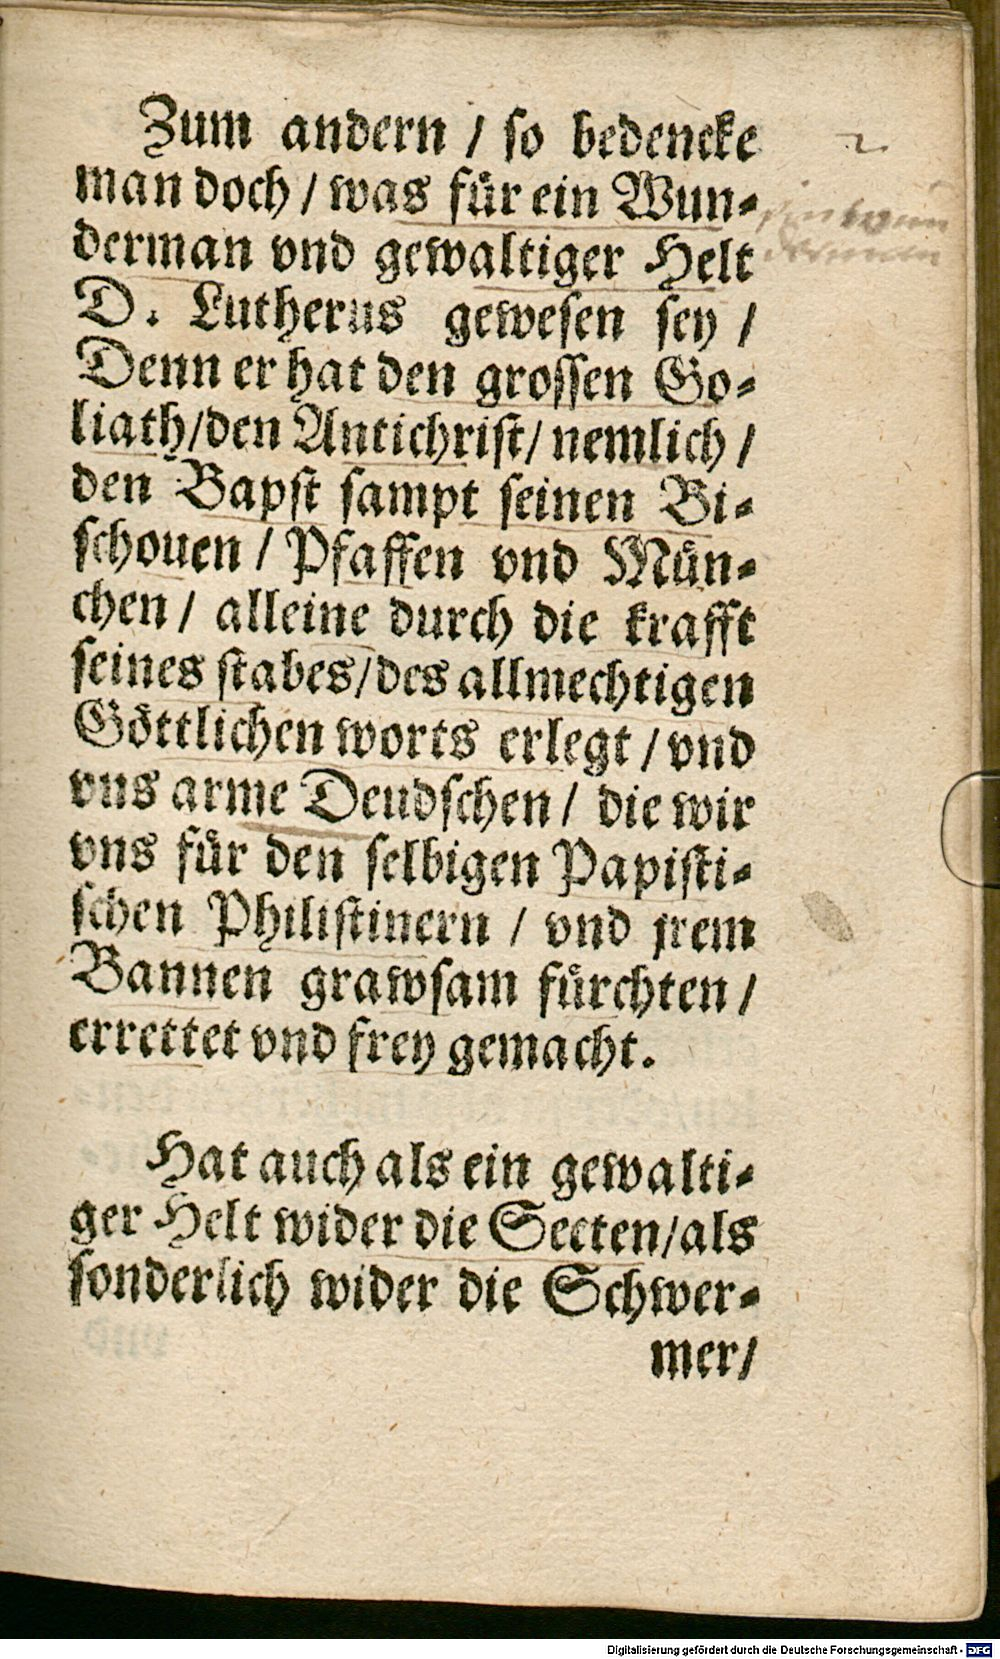 Zum andern / so bedencke
man doch / was für ein Wun⸗
derman vnd gewaltiger Helt
D. Lutherus gewesen sey /
Denn er hat den grossen Go⸗
liath/den Antichrist/ nemlich /
den Bapst sampt seinen Bi⸗
schouen / Pfaffen vnd Mün⸗
chen / alleine durch die krafft
seines stabes/des allmechtigen
Göttlichen worts erlegt / vnd
vns arme Deudschen / die wir
vns für den selbigen Papisti⸗
schen Philistinern / vnd jrem
Bannen grawsam fürchten /
errettet vnd frey gemacht.
Hat auch als ein gewalti⸗
ger Helt wider die Secten/als
sonderlich wider die Schwer⸗
mer/
2.
derman
Digitalisierung gefördert durch die Deutsche Forschungsgemeinschaft - DFG